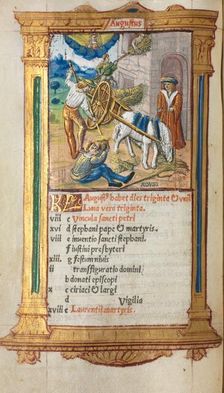 Augustus
KL Augustꝰ habet dies triginta & vnū
Luna vero triginta.
viii c Vincula sancti petri
xvi d stephani pape & martyris.
v e inuentio sancti stephani.
f Iustini presbyteri
xiii g festum niuis
ii transfiguratio domini
b donati episcopi
x c ciriaci & largi
d Vigilia
xviii e Laurentii martyris.